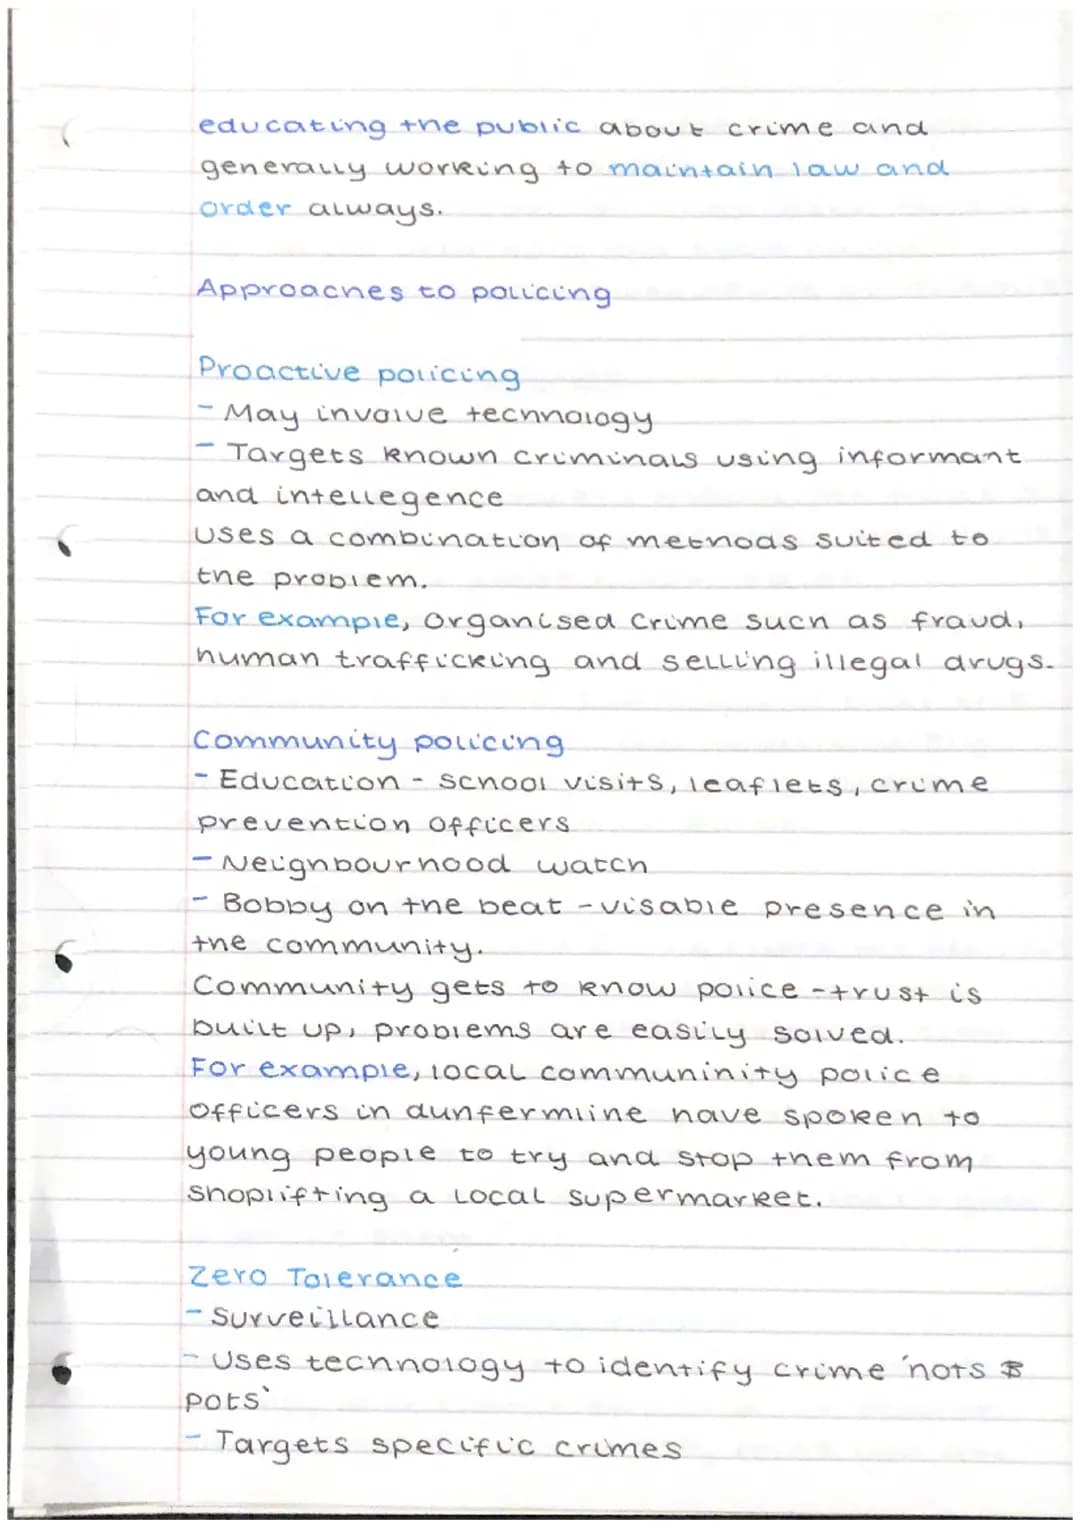 educating the public about crime and
generally working to maintain law and
order always.
Approaches to policing
Proactive policing
- May involve technology
- Targets known criminals using informant
and intellegence
uses a combination of methods suited to
the problem.
For example, organised crime such as fraud,
human trafficking and selling illegal drugs.
Community policing
- Education - school visits, leaflets, crime
prevention officers
- Neighbourhood watch
- Bobby on the beat - visable presence in
the community.
Community gets to know police - trust is
built up, problems are easily solved.
For example, local communinity police
officers in dunfermline have spoken to
young people to try and stop them from
shoplifting a local supermarket.
Zero Tolerance
- Surveillance
- Uses technology to identify crime 'hots
pots'
- Targets specific crimes